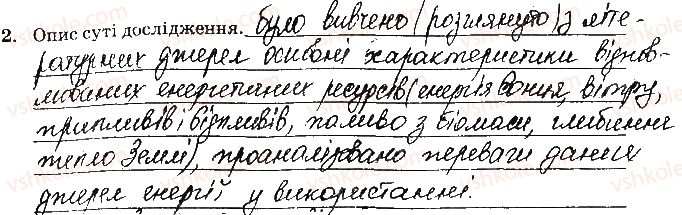 2. Опис суті дослідження. було вивчено (розглянуто) з літе-
ратурних джерел основні характеристики віднов-
люваних енергетичних ресурсів (енергія Сонця, вітру,
припливів і відпливів, паливо з біомаси, глибинне
тепло Землі), проаналізовано переваги даних
джерел енергії у використанні.